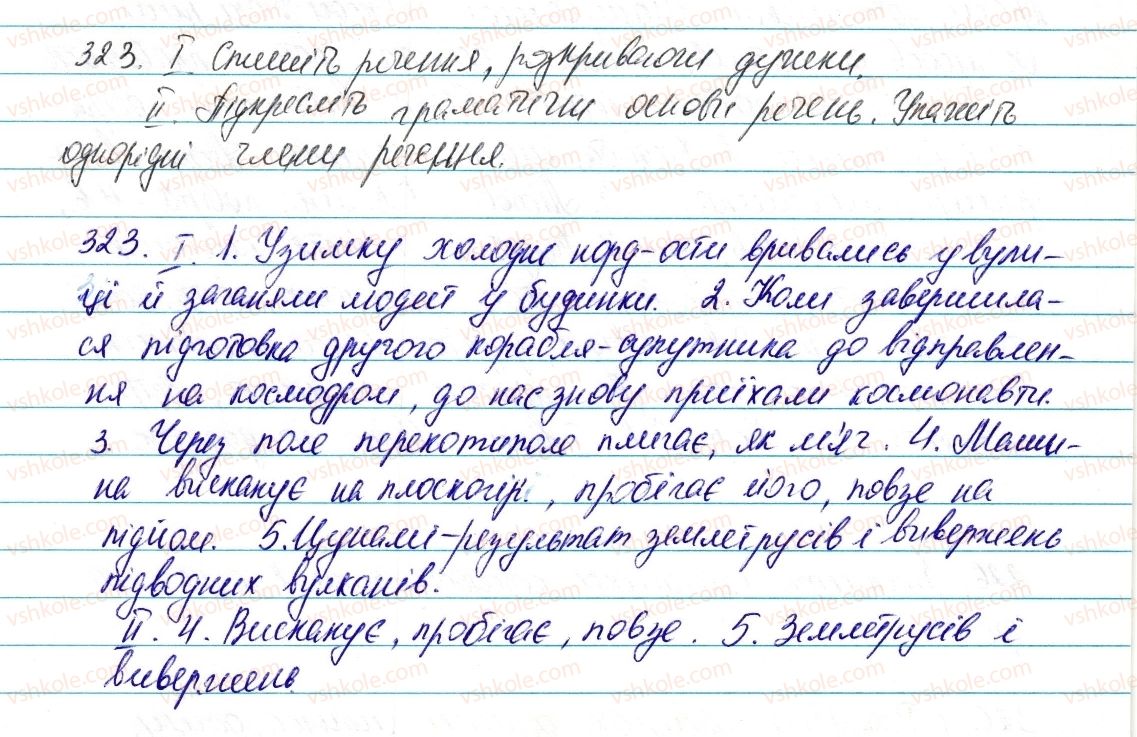 323. I Спишіть речення, розкриваючи дужки.
II. Підкресліть граматичні основи речень. Укажіть
однорідні члени речення.
323. I. 1. Узимку холодні норд-ости вривались у вули-
ці й заганяли людей у будинки. 2. Коли завершила-
ся підготовка другого корабля-супутника до відправлен-
ня на космодром, до нас знову приїхали космонавти.
3. Через поле перекотиполе плигає, як м'яч. 4. Маши-
на вискакує на плоскогір, пробігає його, повзе на
підйом. 5. Цунамі-результат землетрусів і вивержень
підводних вулканів.
II. 4. Вискакує, пробігає, повзе. 5. Землетрусів і
вивержень.